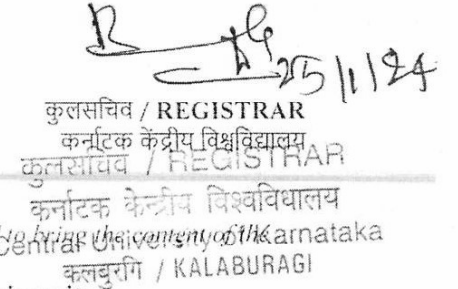 25/1/24
कुलसचिव / REGISTRAR
कर्नाटक केंद्रीय विश्वविद्यालय
कुलसचिव / REGISTRAR
कर्नाटक केन्द्रीय विश्वविधालय
to bring the content of the
Central University of Karnataka
कलबुरगि / KALABURAGI